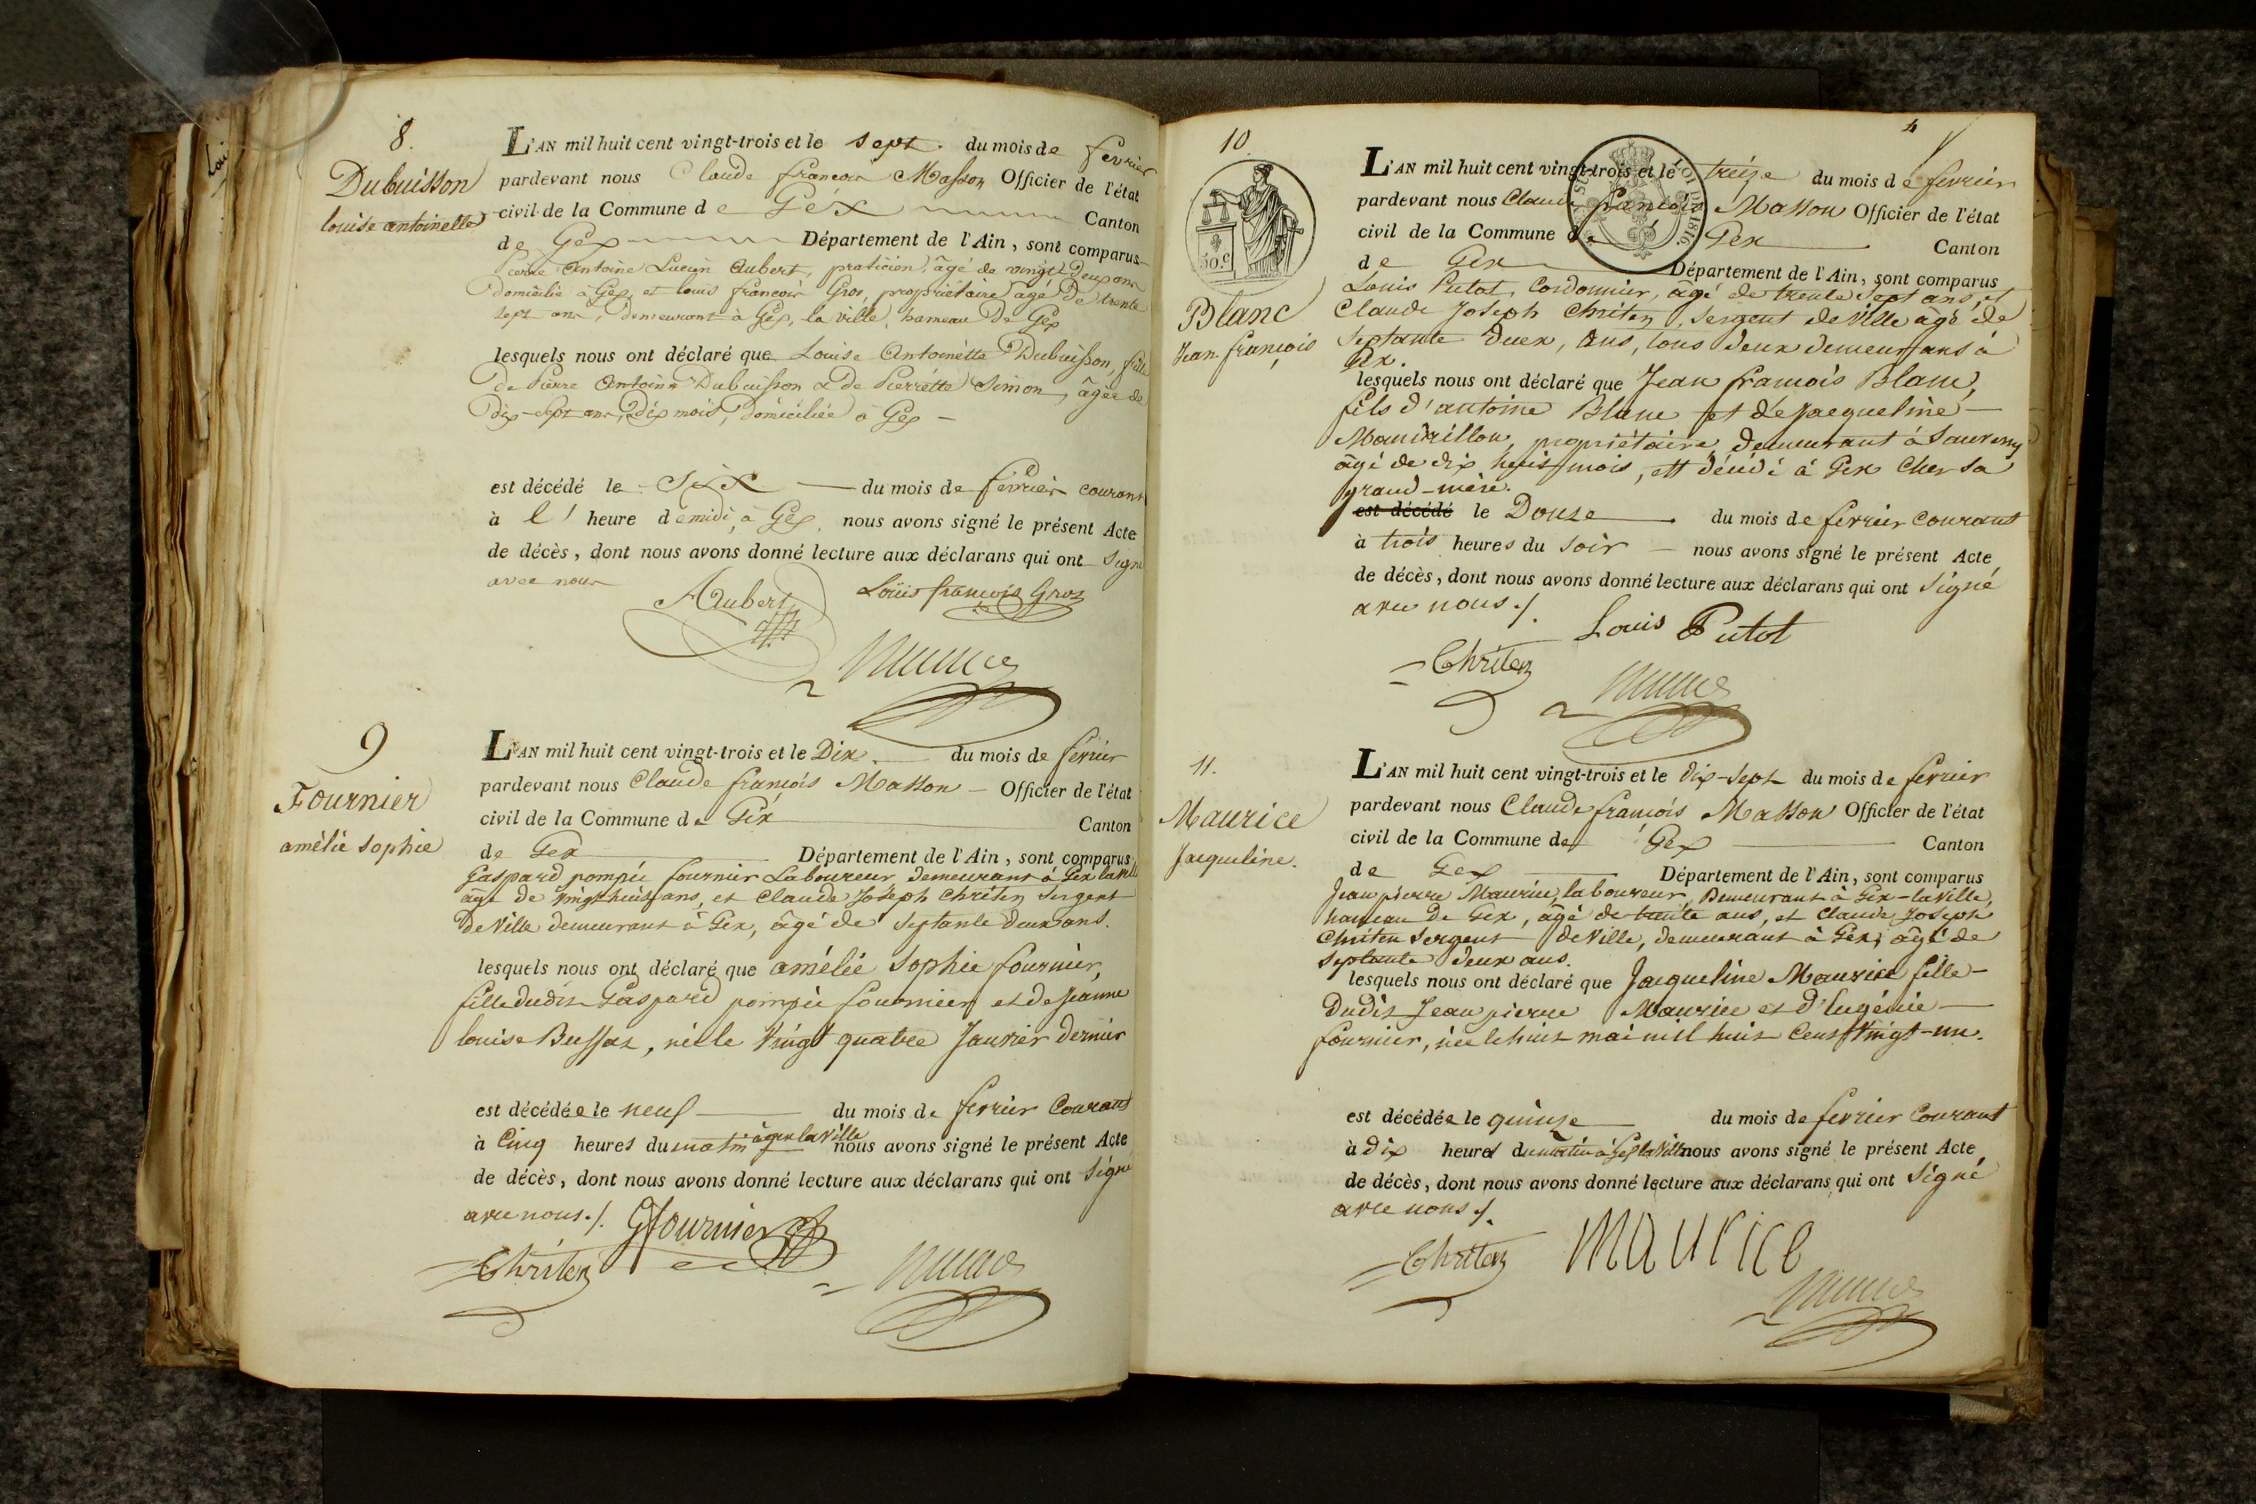 8.
Dubuisson
louise antoinette
L'AN mil huit cent vingt-trois et le sept. du mois de fevrier
pardevant nous Claude françois Masson Officier de l'état
civil de la Commune de Géx Canton
de Géx Département de l'Ain, sont comparus
Pierre Antoine Lucien Aubert, praticien, âgé de vingt deux ans
domicilié à Géx, et louis françois Gros, propriétaire âgé de trente
sept ans, demeurant à Géx, la ville, hameau de Géx
lesquels nous ont déclaré que Louise Antoinette Dubuisson, fille
de Pierre Antoine Dubuisson & de Pierrette Simon, âgée de
dix-sept ans, dix mois, domiciliée à Géx —
est décédé le Six — du mois de fevrier courant
à l' heure de midi, à Géx, nous avons signé le présent Acte
de décès, dont nous avons donné lecture aux déclarans qui ont signé
avec nous
Aubert Louis françois Gros
9
Fournier
amélie sophie
L'AN mil huit cent vingt-trois et le Dix. du mois de fevrier
pardevant nous Claude françois Masson — Officier de l'état
civil de la Commune de Géx Canton
de Gex Département de l'Ain, sont comparus
Gaspard pompée fournier Laboureur demeurant à Gex la ville
âgé de vingt huit ans, et Claude Joseph Chriten Sergent
De Ville demeurant à Gex, âgé de Septante deux ans.
lesquels nous ont déclaré que amélie Sophie fournier,
fille dudit Gaspard pompée fournier et de Jeanne
louise Bussaz, née le Vingt quatre Janvier dernier
est décédée le neuf du mois de fevrier Courant
à Cinq heures du matin à gex la ville nous avons signé le présent Acte
de décès, dont nous avons donné lecture aux déclarans qui ont Signé
avec nous ./.
GJfournier
Chriten
4
10.
50 C
Blanc
Jean françois
L'AN mil huit cent vingt-trois et le treize du mois de fevrier
pardevant nous Claude françois Masson Officier de l'état
civil de la Commune de Gex Canton
de Gex Département de l'Ain, sont comparus
Louis Putot, Cordonnier, âgé de trente sept ans, et
Claude Joseph Chriten, Sergent de Ville âgé de
Septante deux, ans, tous deux demeurans à
Gex.
lesquels nous ont déclaré que Jean françois Blanc,
fils d'antoine Blanc et de Jacqueline —
Mandrillon, propriétaire, demeurant à Sauverny
âgé de dix huit mois, est décédé à Gex Cher sa
grand-mère.
est décédé le Douze du mois de fevrier Courant
à trois heures du soir — nous avons signé le présent Acte
de décès, dont nous avons donné lecture aux déclarans qui ont Signé
avec nous ./.
Louis Putot
Chriten
11.
Maurice
Jacqueline.
L'AN mil huit cent vingt-trois et le dix-sept du mois de fevrier
pardevant nous Claude françois Masson Officier de l'état
civil de la Commune de Gex Canton
de Gex Département de l'Ain, sont comparus
Jean pierre Maurice, laboureur, Demeurant à Gex-la Ville,
hameau de Gex, âgé de trente ans, et Claude Joseph
Chriten Sergent de Ville, demeurant à Gex, âgé de
Septante deux ans.
lesquels nous ont déclaré que Jacqueline Maurice fille —
Dudit Jean pierre Maurice et d'Eugénie —
fournier, née le huit mai mil huit Cent Vingt-un.
est décédée le quinze du mois de fevrier Courant
à dix heures du matin à Gex la Ville nous avons signé le présent Acte
de décès, dont nous avons donné lecture aux déclarans qui ont Signé
avec nous ./.
Chriten maurice